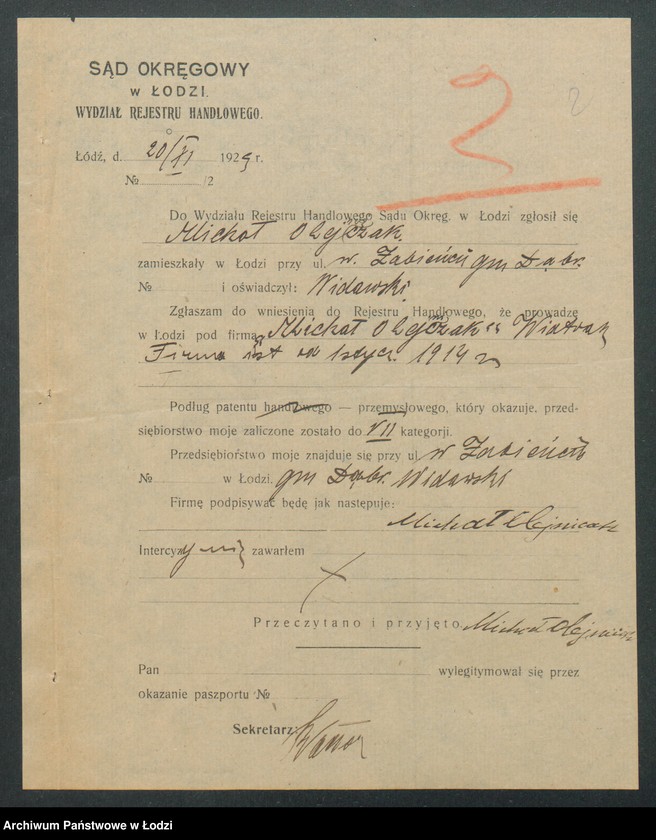 SĄD OKRĘGOWY
w ŁODZI.
WYDZIAŁ REJESTRU HANDLOWEGO.
2
2
Łódź, d. 20/XI 1925 r.
№ /2
Do Wydziału Rejestru Handlowego Sądu Okręg. w Łodzi zgłosił się
Michał Olejczak.
zamieszkały w Łodzi przy ul. w. Żabieńcu gm Dąbr.
№ i oświadczył: Widawski
Zgłaszam do wniesienia do Rejestru Handlowego, że prowadzę
w Łodzi pod firmą „Michał Olejczak" Wiatrak
Firma ist od 1 stycz. 1914 r
Podług patentu handlowego — przemysłowego, który okazuje, przed-
siębiorstwo moje zaliczone zostało do VII kategorji.
Przedsiębiorstwo moje znajduje się przy ul. w Żabieńcu
№ w Łodzi. gm Dąbr. Widawski
Firmę podpisywać będę jak następuje:
Michał Olejniczak
Intercyzy nie zawarłem
Przeczytano i przyjęto. Michał Olejniczak
Pan wylegitymował się przez
okazanie paszportu №
Sekretarz:
Archiwum Państwowe w Łodzi